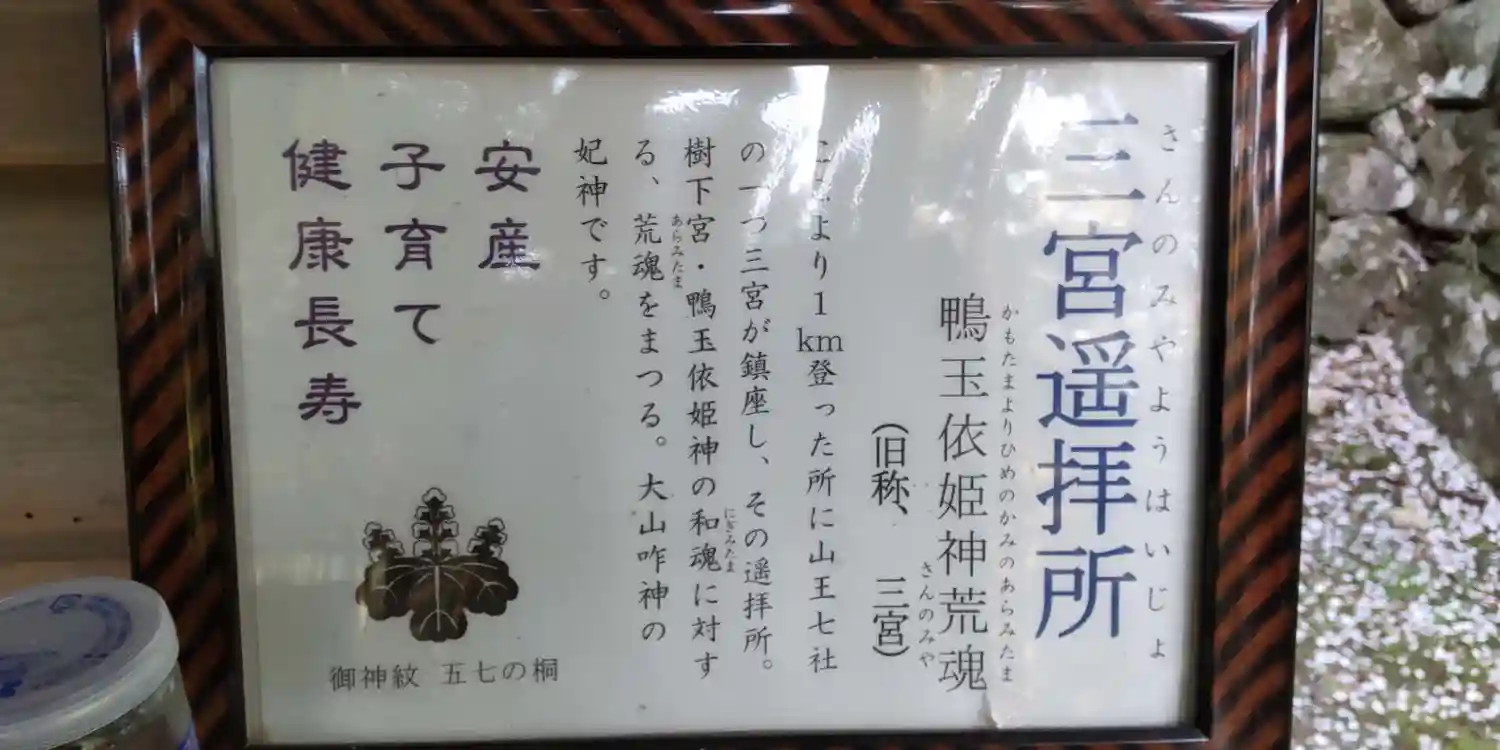 さんのみやようはいじょ
三宮遥拝所
かもたまよりひめのかみのあらみたま
鴨玉依姫神荒魂
さんのみや
(旧称、三宮)
ここより1km登った所に山王七社
の一つ三宮が鎮座し、その遥拝所。
にぎみたま
樹下宮・鴨玉依姫神の和魂に対す
あらみたま
る、荒魂をまつる。大山咋神の
妃神です。
安産
子育て
健康長寿
御神紋 五七の桐